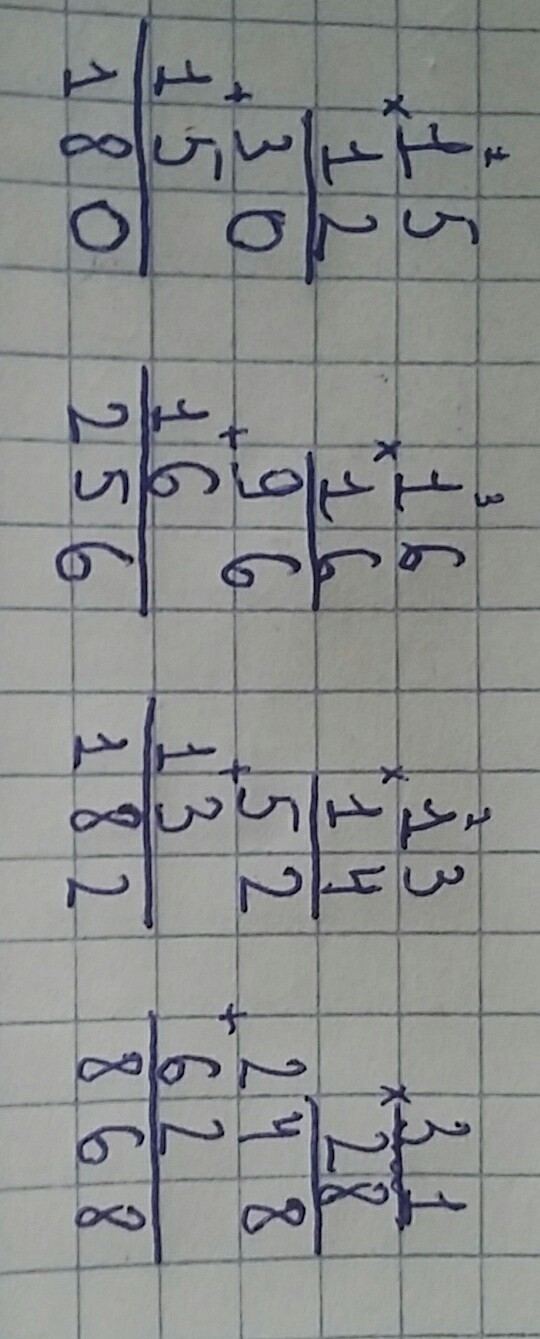 1
× 15
12
+ 30
15
180
3
× 16
16
+ 96
16
256
1
× 13
14
+ 52
13
182
× 31
28
+ 248
62
868